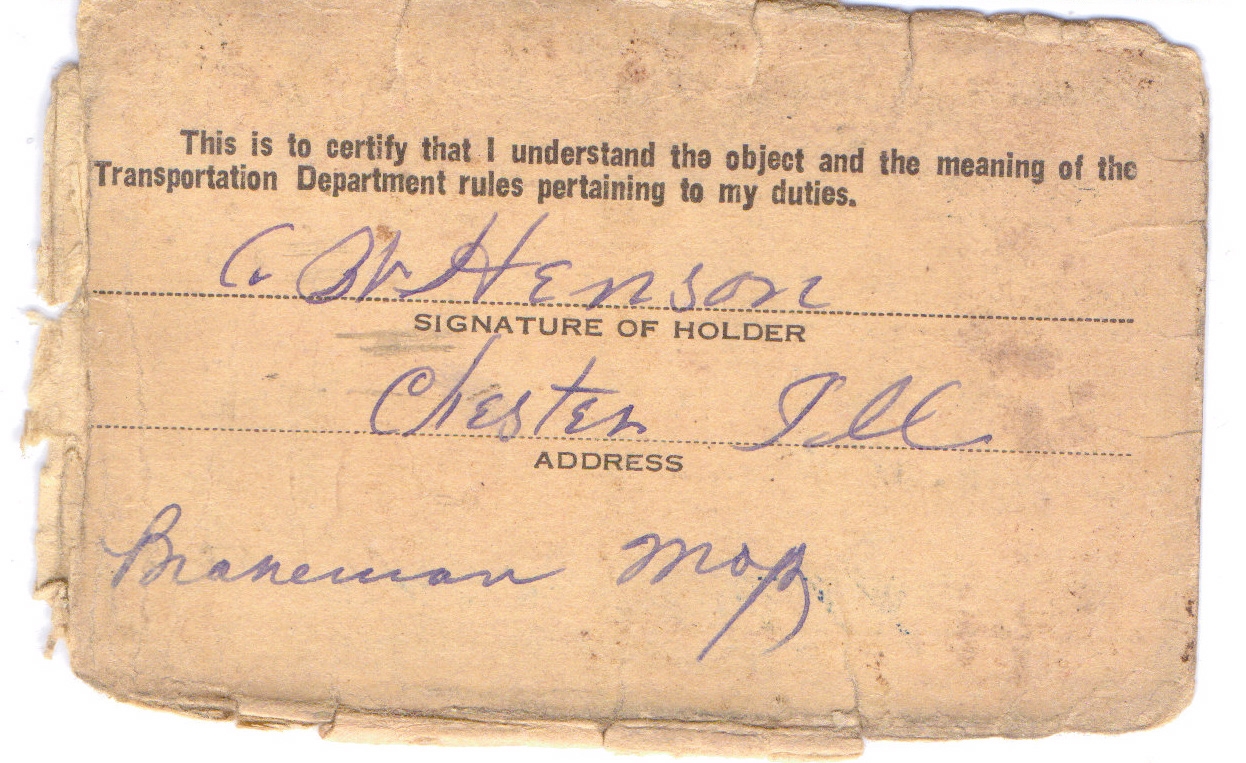 This is to certify that I understand the object and the meaning of the
Transportation Department rules pertaining to my duties.
Henson
SIGNATURE OF HOLDER
Chester Ill
ADDRESS
Brakeman Mop